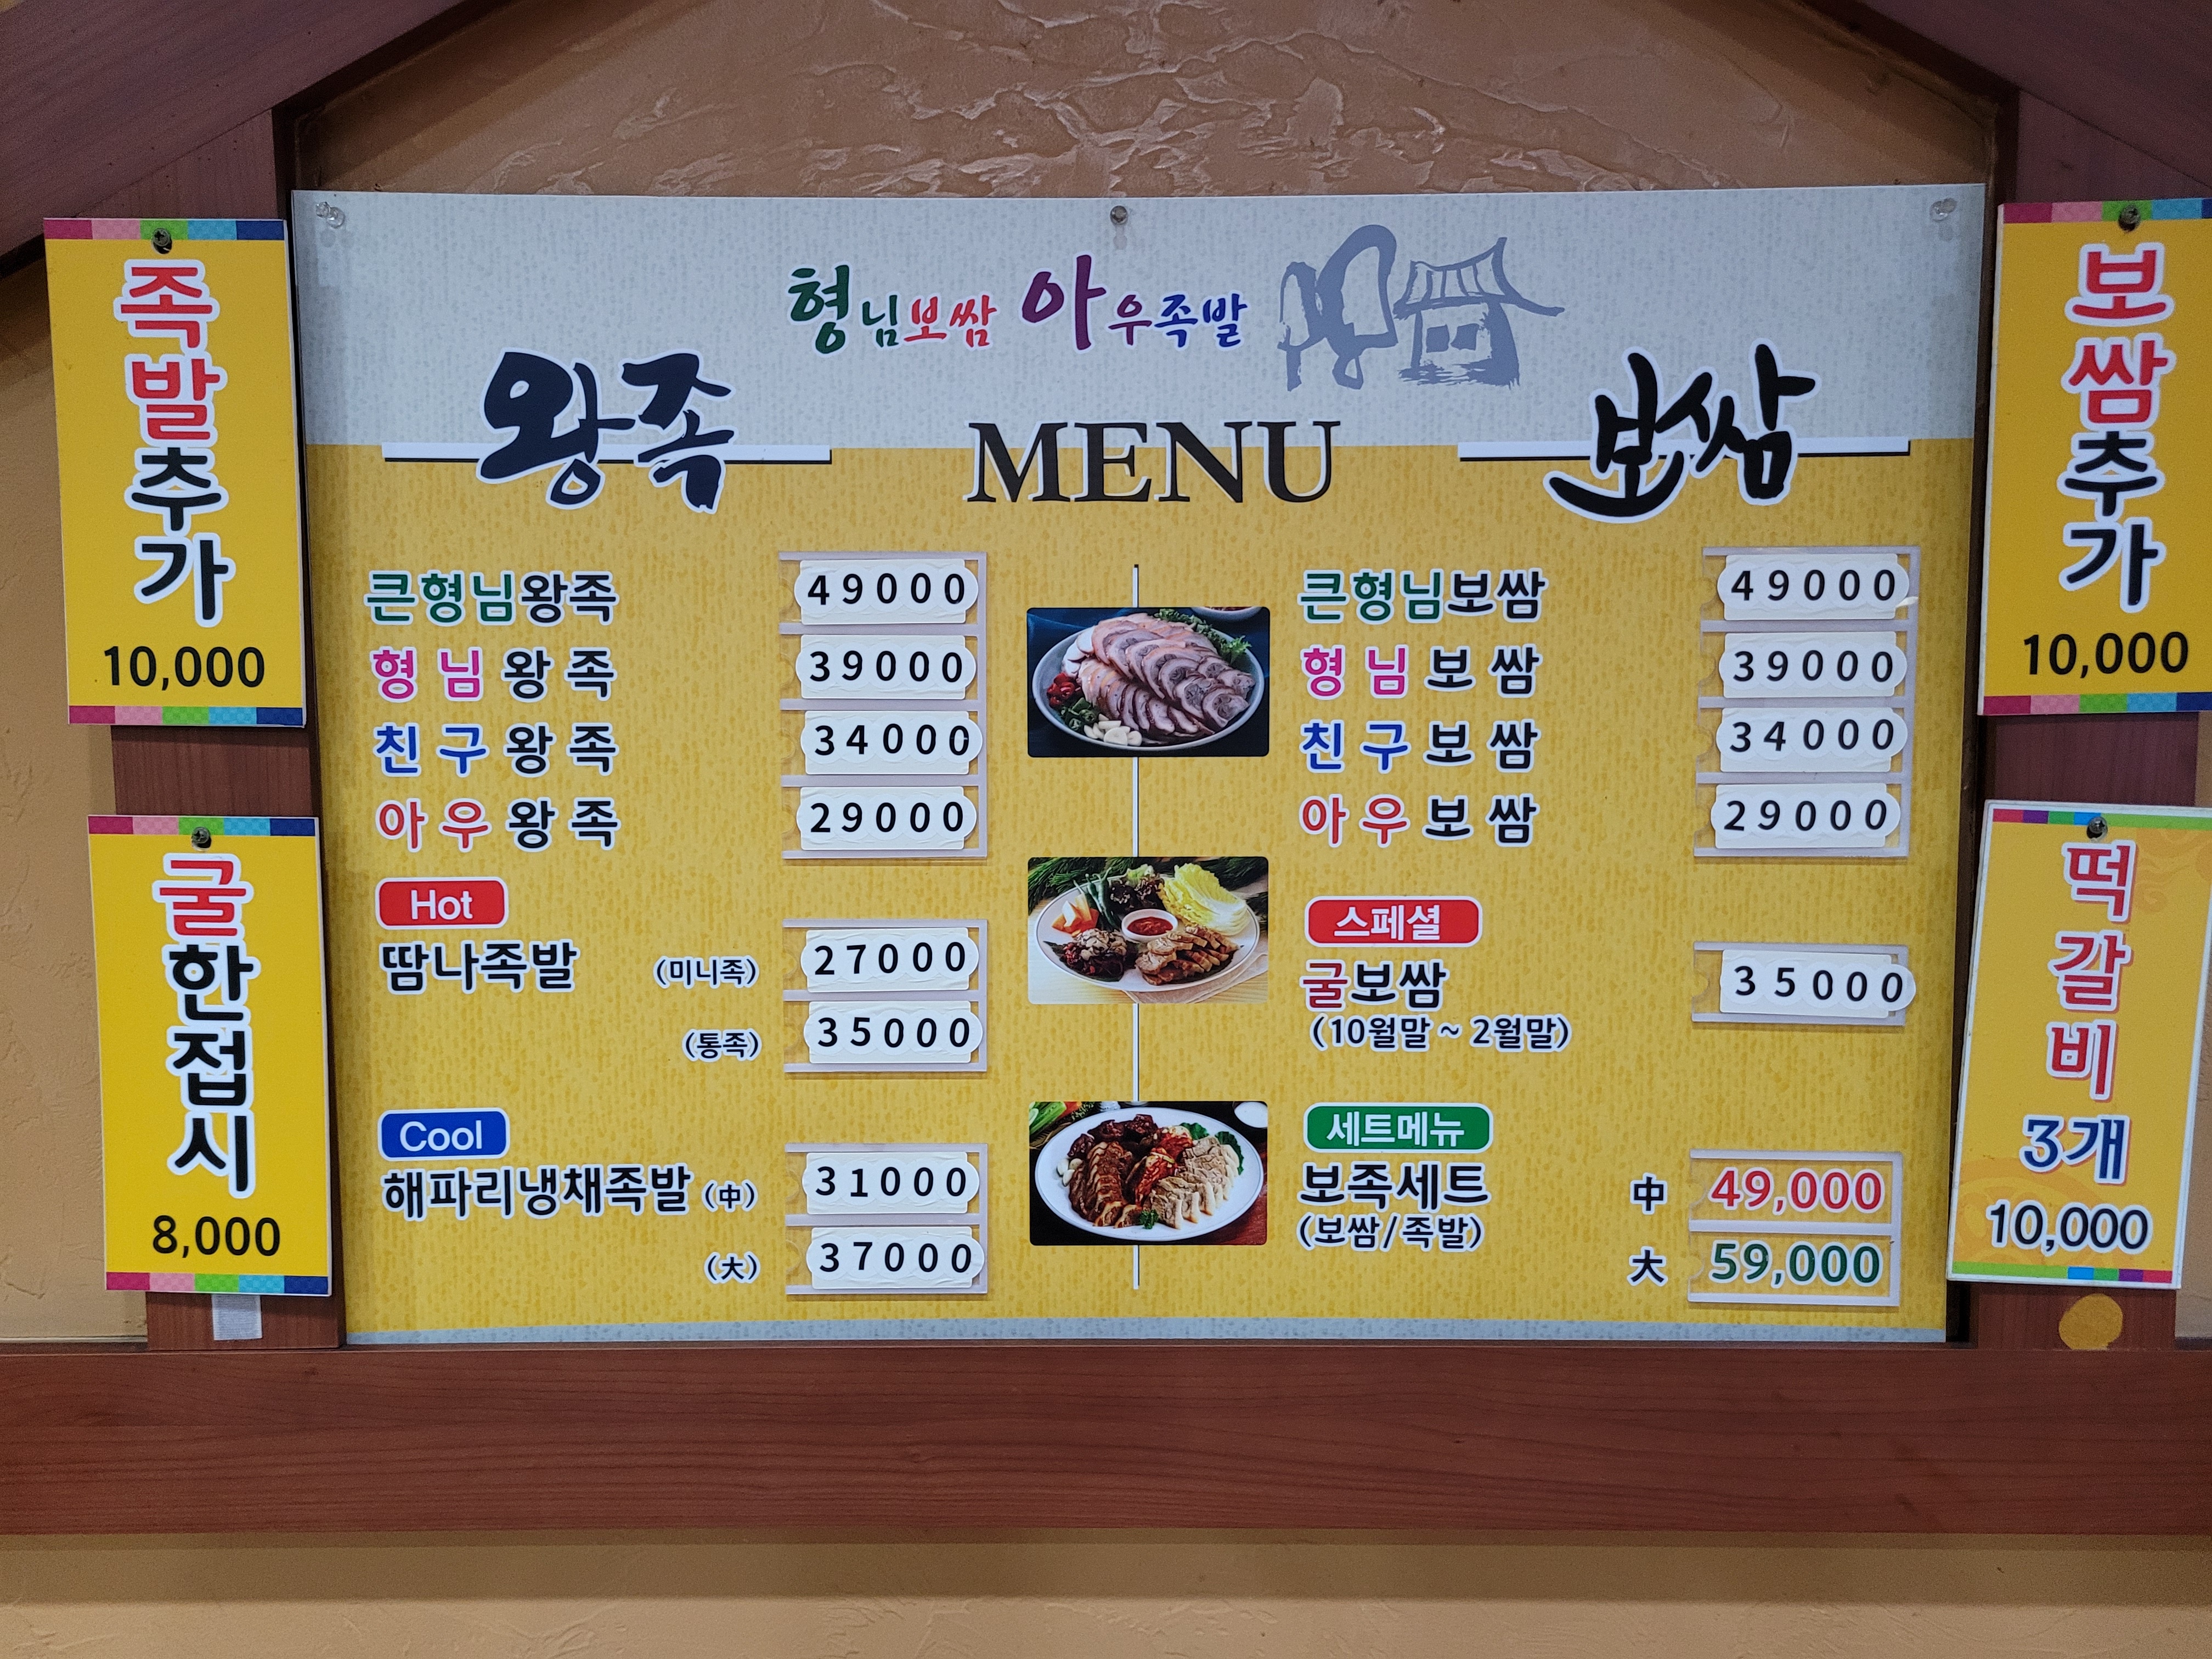 족발추가
10,000
굴한접시
8,000
형님보쌈 아우족발
왕족
MENU
보쌈
큰형님왕족 49000
형님왕족 39000
친구왕족 34000
아우왕족 29000
Hot
땀나족발 (미니족) 27000
(통족) 35000
Cool
해파리냉채족발 (中) 31000
(大) 37000
큰형님보쌈 49000
형님보쌈 39000
친구보쌈 34000
아우보쌈 29000
스페셜
굴보쌈 35000
(10월말 ~ 2월말)
세트메뉴
보족세트 中 49,000
(보쌈/족발) 大 59,000
보쌈추가
10,000
떡갈비
3개
10,000